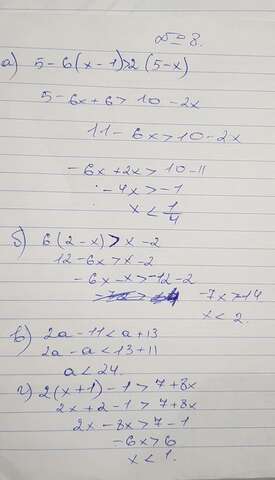 № 8.
а) 5 - 6(x - 1) > 2 (5 - x)
5 - 6x + 6 > 10 - 2x
11 - 6x > 10 - 2x
-6x + 2x > 10 - 11
-4x > -1
x < 1/4
б) 6(2 - x) > x - 2
12 - 6x > x - 2
-6x - x > -12 - 2
-7x > -14
x < 2.
в) 2a - 11 < a + 13
2a - a < 13 + 11
a < 24.
г) 2(x + 1) - 1 > 7 + 8x
2x + 2 - 1 > 7 + 8x
2x - 8x > 7 - 1
-6x > 6
x < 1.